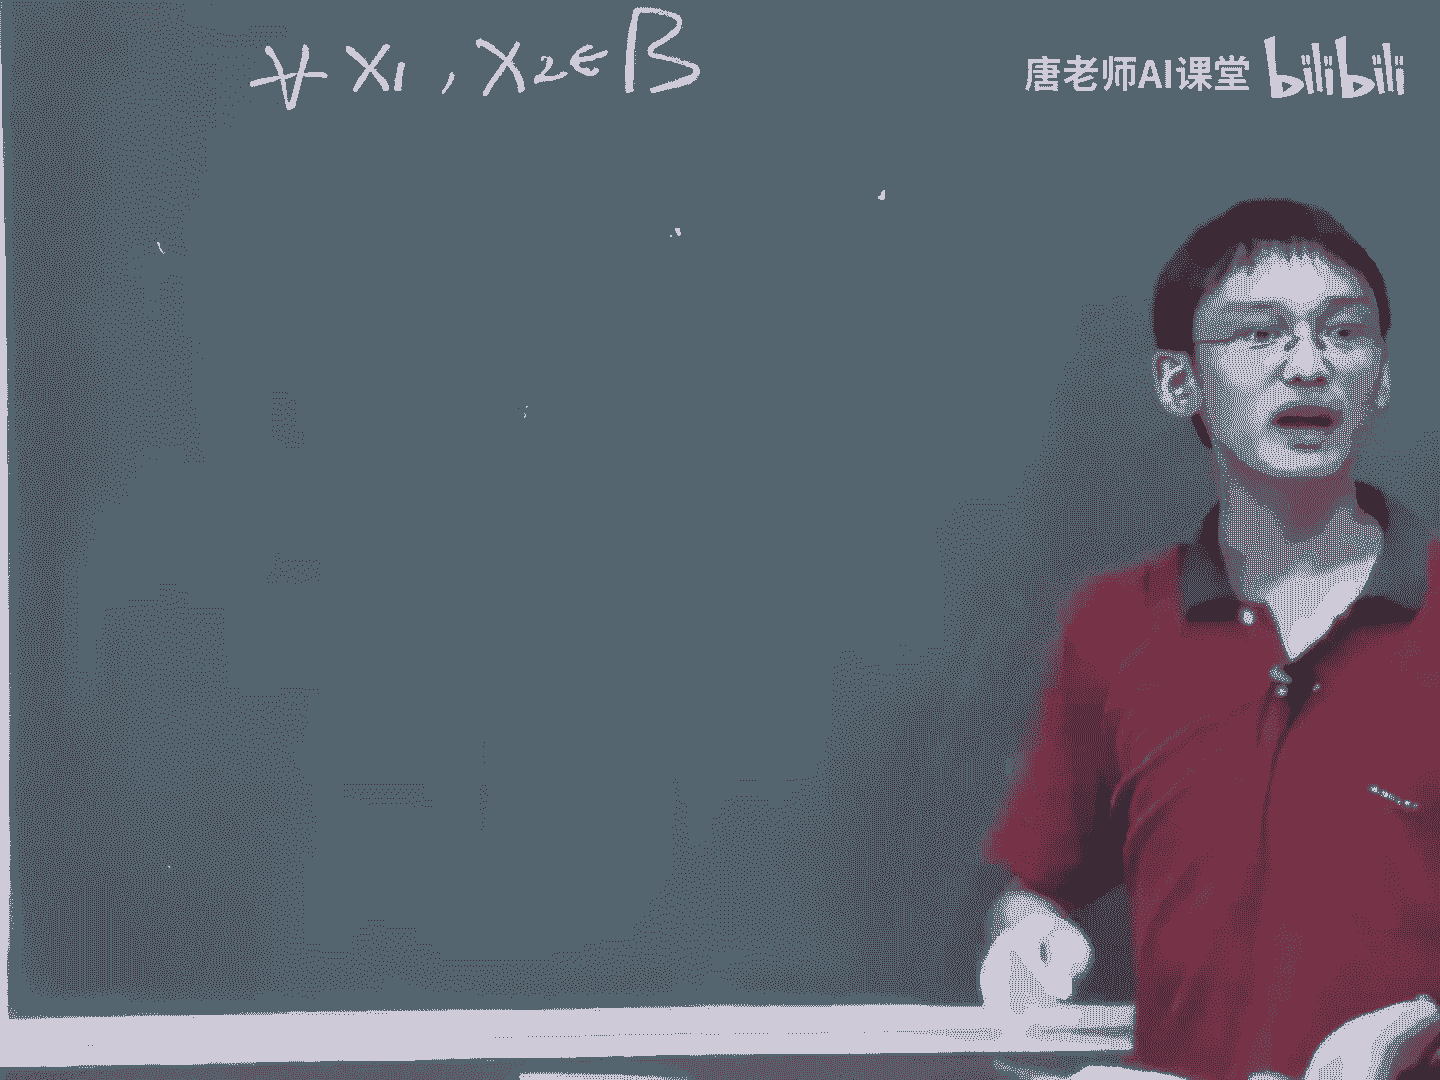 ∀ x₁, x₂ ∈ B
唐老师AI课堂 bilibili